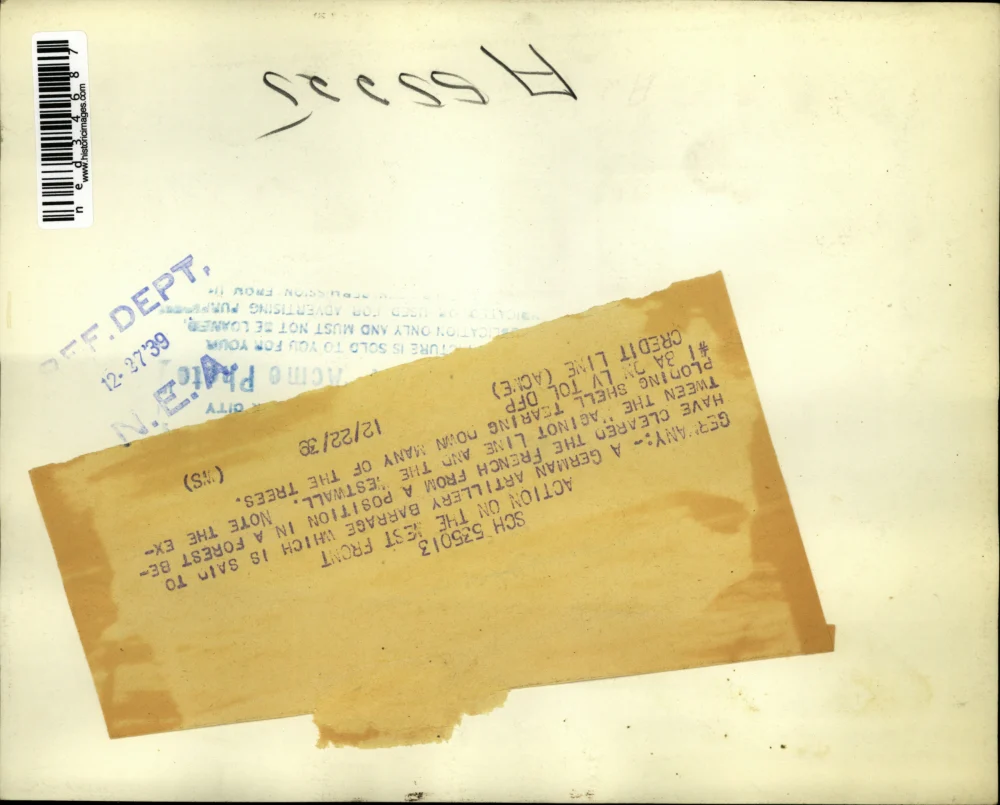 ned34687
www.historicimages.com
REF. DEPT.
12-27'39
N.E.A.
SCH 535013
ACTION ON THE WEST FRONT
GERMANY:- A GERMAN ARTILLERY BARRAGE WHICH IS SAID TO
HAVE CLEARED THE FRENCH FROM A POSITION IN A FOREST BE-
TWEEN THE MAGINOT LINE AND THE WESTWALL. NOTE THE EX-
PLODING SHELL TEARING DOWN MANY OF THE TREES.
#1 3A ON LV TOL DFP 12/22/39 (WS)
CREDIT LINE (ACME)
CITY
Acme Photo
IS SOLD TO YOU FOR YOUR
ONLY AND MUST NOT BE LOANED,
OR USED FOR ADVERTISING
PERMISSION FROM